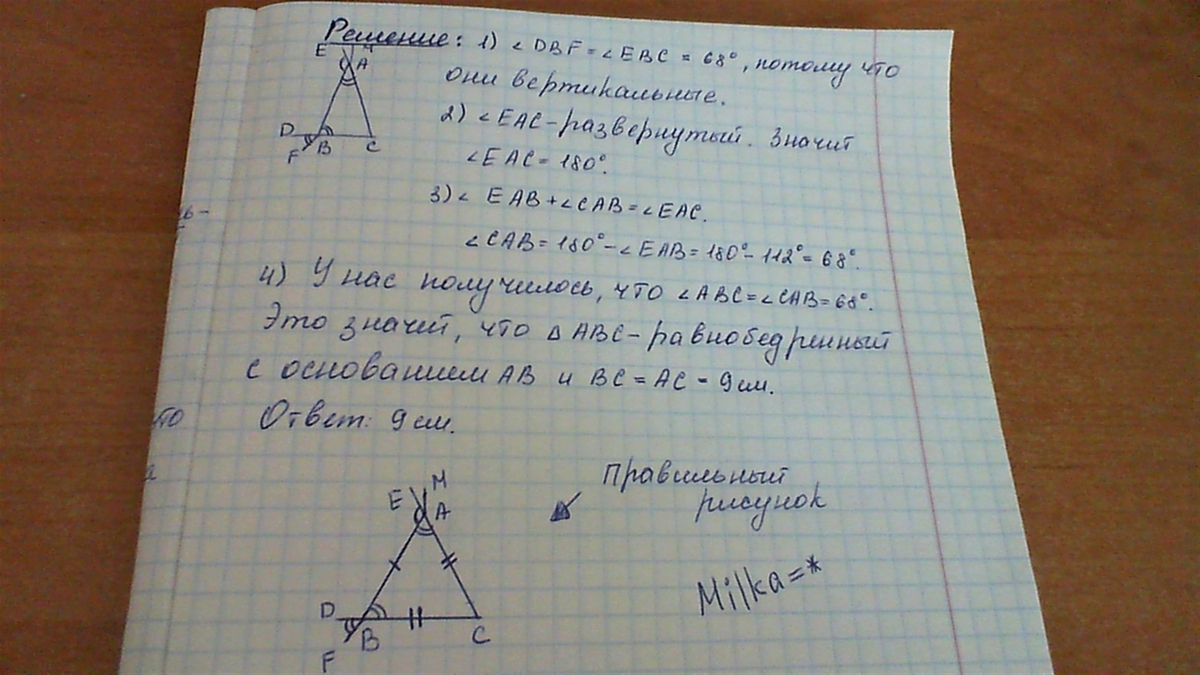 Решение: 1) ∠DBF = ∠EBC = 68°, потому что
они вертикальные.
2) ∠EAC - развернутый. Значит
∠EAC = 180°.
3) ∠ EAB + ∠CAB = ∠EAC.
∠CAB = 180° - ∠EAB = 180° - 112° = 68°.
4) У нас получилось, что ∠ABC = ∠CAB = 68°.
Это значит, что △ ABC - равнобедренный
с основанием AB и BC = AC - 9 см.
Ответ: 9 см.
E M
A
D
B C
F
Правильный
рисунок
M
E A
D
B C
F
Milka=*